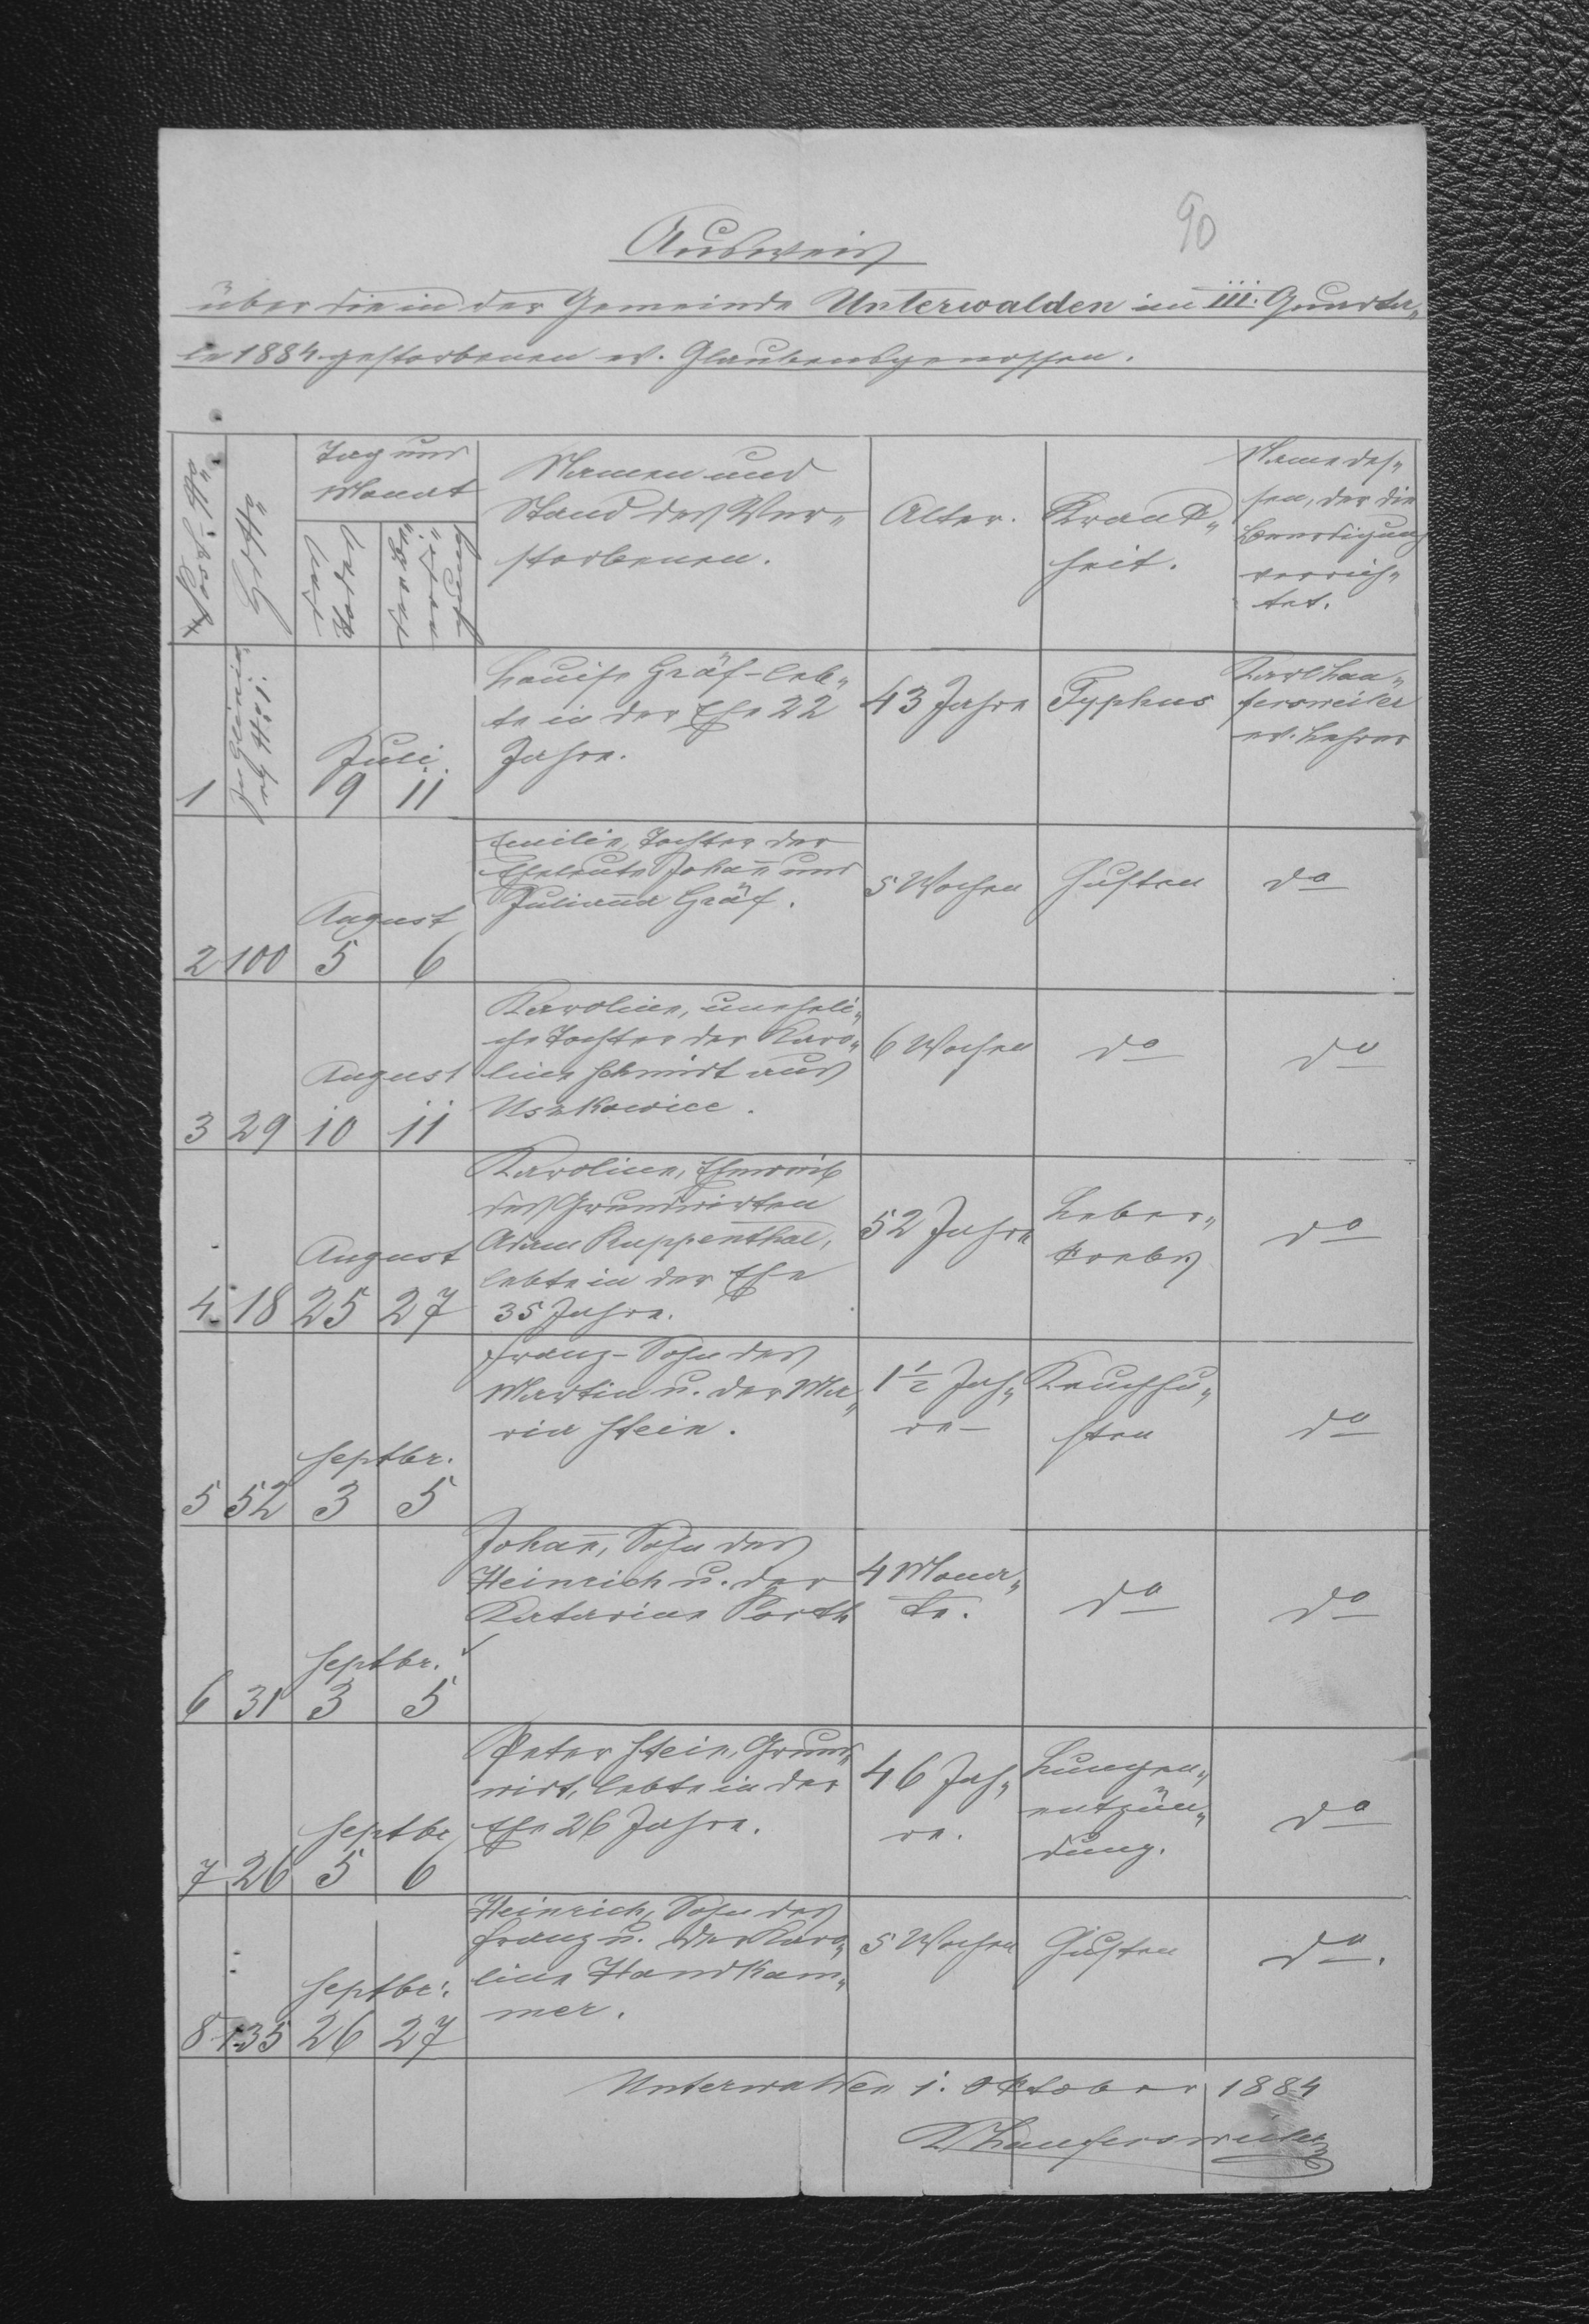 90
Ausweis
über die in der Gemeinde Unterwalden im III. Quarta„
le 1884 gestorbenen ev. Glaubensgenossen.
Post. No
Hs No
Tag und
Monat
des
Todes
der Be„
erdi„
gung
Namen und
Stand des Ver„
storbenen.
Alter.
Krank„
heit.
Name des„
sen, der die
Beerdigung
verrich„
tet.
1
No 1.
Juli
9 11
Louise Gräf - leb„
te in der Ehe 22
Jahre.
43 Jahre
Typhus
Karl Lau„
fersweiler
ev. Lehrer
2
100
August
5 6
Emilie, Tochter der
Eheleute Johañ und
Juliaña Gräf.
5 Wochen
Husten
do
3
29
August
10 11
Karoline, uneheli„
che Tochter der Karo„
line Schmidt aus
Uszkowice.
6 Wochen
do
do
4
18
August
25 27
Karoline, Eheweib
des Grundwirten
Adam Ruppenthal,
lebte in der Ehe
35 Jahre.
52 Jahre
Leber„
krebs
do
5
52
Septbr.
3 5
Franz - Sohn des
Martin u. der Ma„
ria Stein.
1 1/2 Jah„
re -
Keuchhu„
sten
do
6
31
Septbr.
3 5
Johañ, Sohn des
Heinrich u. der
Katarine Porth
4 Mona„
te.
do
do
7
26
Septbr
5 6
Peter Stein, Grund„
wirt, lebte in der
Ehe 26 Jahre.
46 Jah„
re.
Lungen„
entzün„
dung.
do
8
135
Septbr.
26 27
Heinrich, Sohn des
Franz u. der Karo„
line Handkam„
mer.
5 Wochen
Husten
do.
Unterwalden 1. Oktober 1884
K Laufersweiler